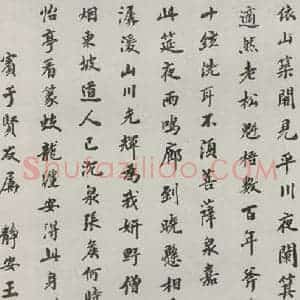 依山築閣見平川夜闌箕
適然老松魁梧數百年斧
十絃洗耳不須菩薩泉嘉
此筵夜雨鳴廊到曉懸相
潺湲山川光輝為我妍野僧
烟東坡道人已沈泉張矦何時
怡亭看篆蛟龍纏安得此身
賓于賢友屬 靜安王
Shufaziliao.com